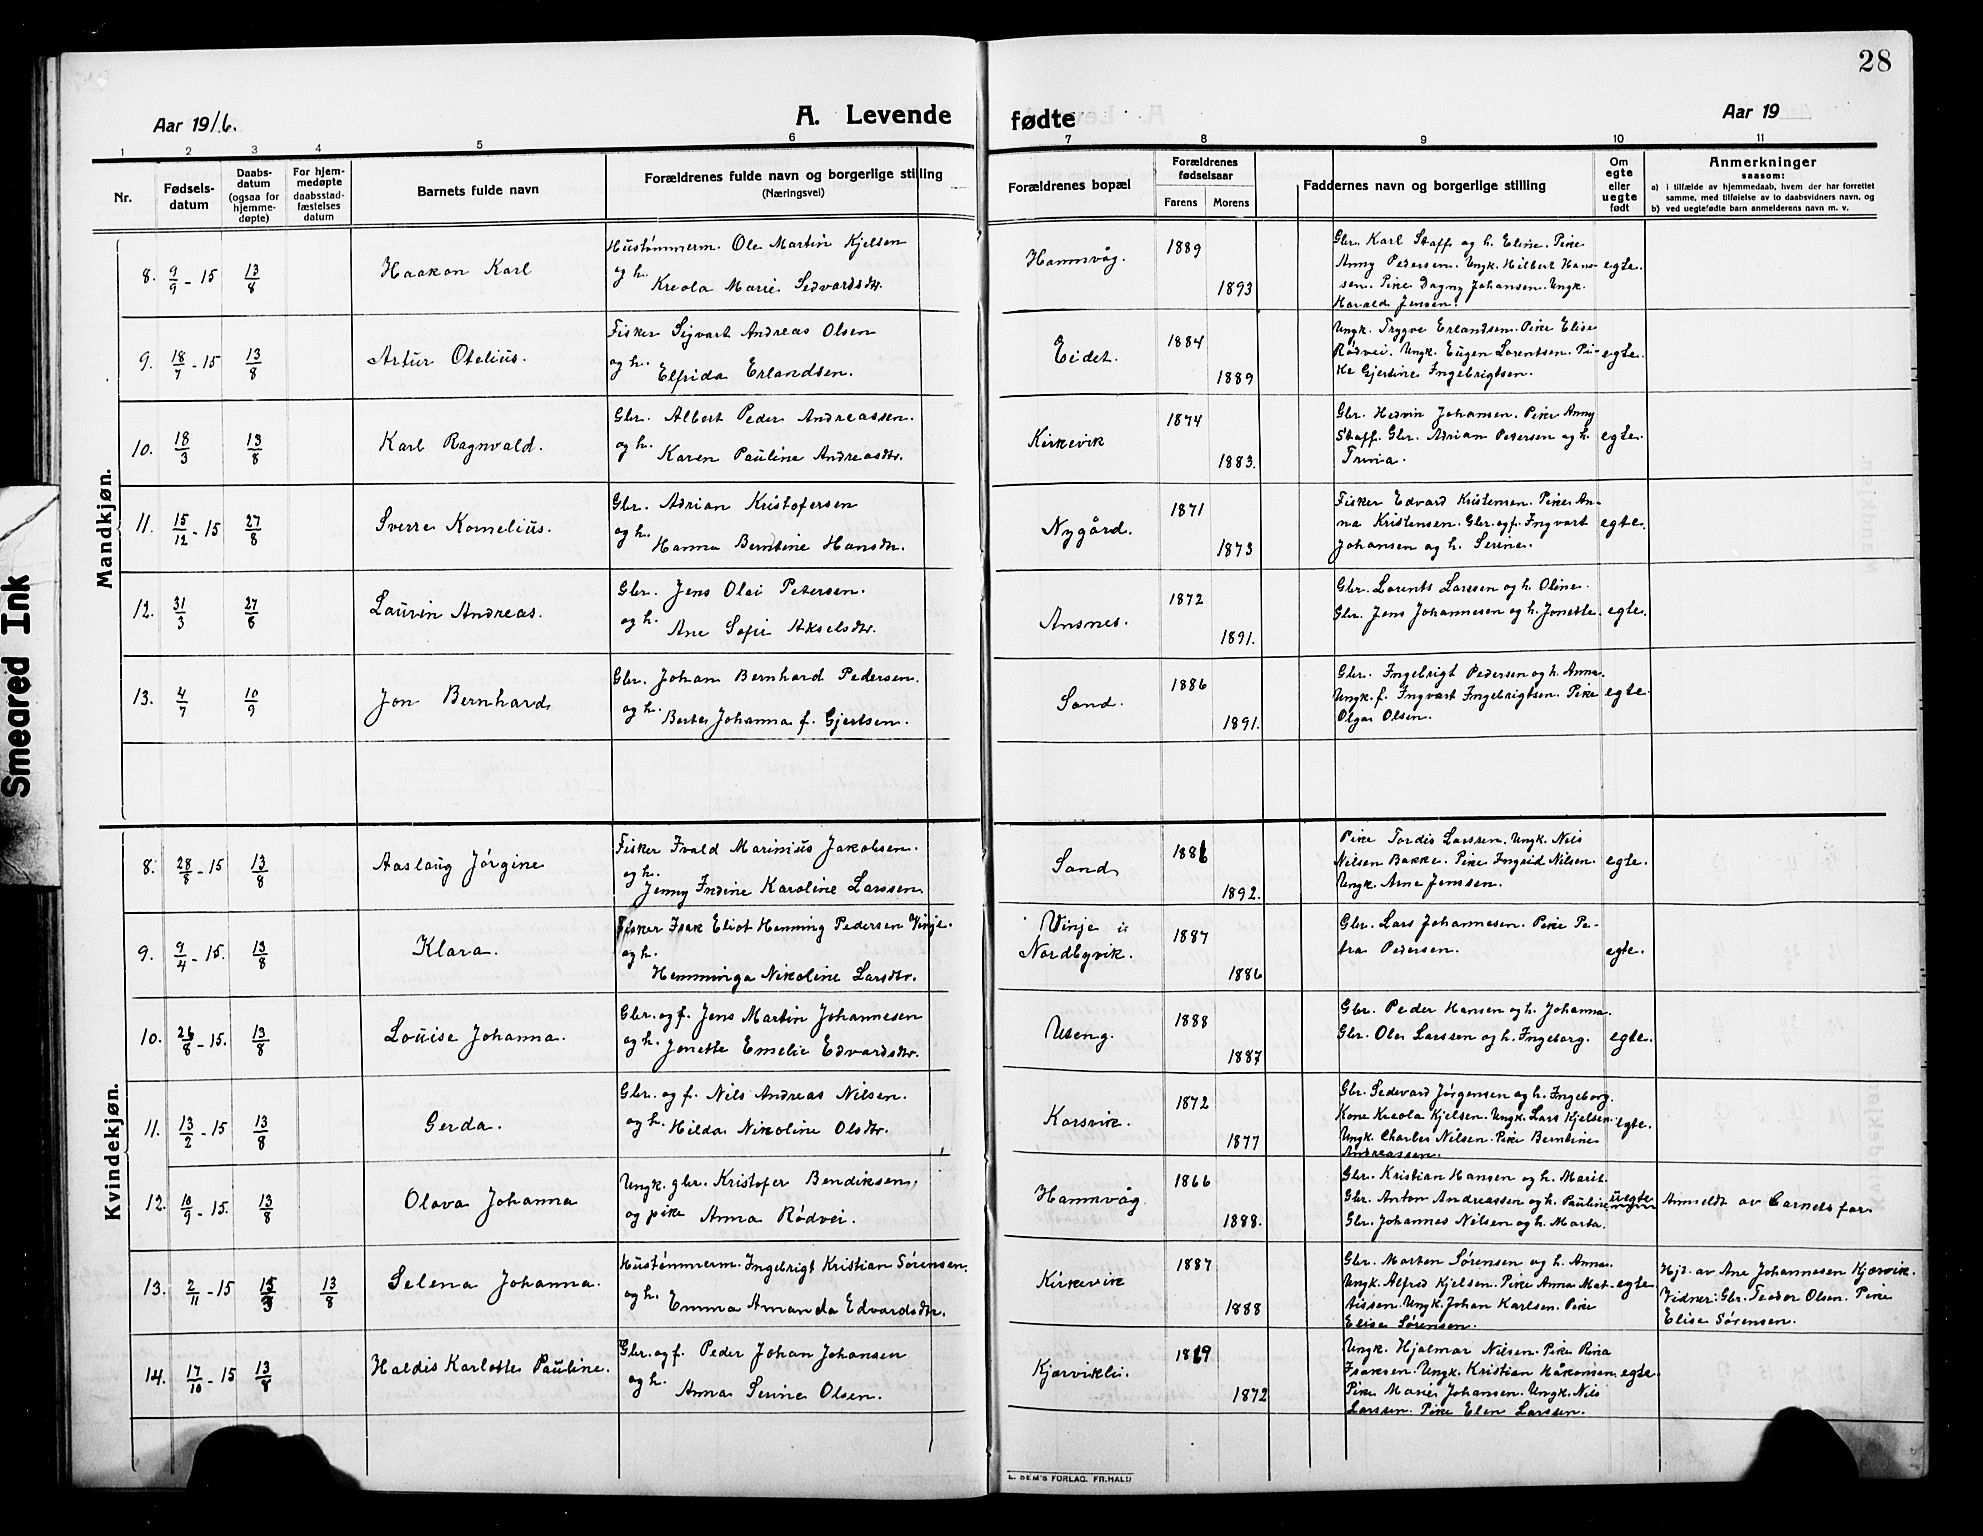 28
Aar 1916.
A. Levende
fødte
Aar 19
1 2 3 4 5 6 7 8 9 10 11
Nr.
Fødsels-
datum
Daabs-
datum
(ogsaa for
hjemme-
døpte)
For hjem-
medøpte
daabsstad-
fæstelses
datum
Barnets fulde navn
Forældrenes fulde navn og borgerlige stilling
(Næringsvei)
Forældrenes bopæl
Forældrenes
fødselsaar
Farens Morens
Faddernes navn og borgerlige stilling
Om
egte
eller
uegte
født
Anmerkninger
saasom:
a) i tilfælde av hjemmedaab, hvem der har forrettet
samme, med tilføielse av to daabsvidners navn, og
b) ved uegtefødte barn anmelderens navn m. v.
Mandkjøn.
8. 9/9 - 15 13/8 Haakon Karl
Hustømmerm. Ole Martin Kjelsen
og h.
Kreola Marie Sedvardsdtr.
Hamnvåg. 1889 1893
Gbr. Karl Staff og h. Eline. Pike
Anny Pedersen. Ungk. Hilbert Han-
sen. Pike Dagny Johansen. Ungk.
Harald Jensen.
egte.
9. 18/7 - 15 13/8 Artur Otelius.
Fisker Sigvart Andreas Olsen
og h.
Elfrida Erlandsen.
Eidet. 1884 1889
Ungk. Trygve Erlandsen. Pike Elise
Rødvei. Ungk. Eugen Lorentsen. Pi-
ke Gjertine Ingebrigtsen.
egte.
10. 18/3 13/8 Karl Ragnvald.
Gbr. Albert Peder Andreassen.
og h.
Karen Pauline Andreasdtr.
Kirkevik 1874 1883.
Gbr. Hedvin Johansen. Pike Anny
Staff. Gbr. Adrian Pedersen og h.
Trina.
egte.
11. 15/12 - 15 27/8 Sverre Kornelius.
Gbr. Adrian Kristofersen
og h.
Hanna Berntine Hansdtr.
Nygård. 1871 1873
Fisker Edvard Kristensen. Pike An-
na Kristensen. Gbr. og f. Ingvart
Johansen og h. Serine.
egte.
12. 31/3 27/8 Laurin Andreas.
Gbr. Jens Olai Petersen.
og h.
Ane Sofie Akselsdtr.
Ansnes. 1872 1891.
Gbr. Lorents Larssen og h. Oline.
Gbr. Jens Johannesen og h. Jonette.
egte.
13. 4/7 10/9 Jon Bernhard
Gbr. Johan Bernhard Pedersen.
og h.
Berte Johanna f. Gjertsen.
Sand. 1886 1891.
Gbr. Ingebrigt Pedersen og h. Anna.
Ungk. f. Ingvart Ingebrigtsen. Pike
Olga Olsen.
egte.
Kvindekjøn.
8. 28/8 - 15 13/8 Aaslaug Jørgine
Fisker Ivald Marinius Jakobsen.
og h.
Jenny Indine Karoline Larssen.
Sand 1886 1892.
Pike Tordis Larssen. Ungk. Nils
Nilsen Bakke. Pike Ingrid Nilsen.
Ungk. Arne Jenssen.
egte.
9. 9/4 - 15. 13/8 Klara.
Fisker Isak Eliot Henning Pedersen Vinje.
og h.
Hemminga Nikoline Larsdtr.
Vinje i
Nordbyvik. 1887 1886
Gbr. Lars Johannesen. Pike Pe-
tra Pedersen.
egte.
10. 26/8 - 15. 13/8 Louise Johanna.
Gbr. og f. Jens Martin Johannesen
og h.
Jonette Emelie Edvardsdtr.
Uteng. 1888 1887
Gbr. Peder Hansen og h. Johanna.
Gbr. Ole Larssen og h. Ingeborg.
egte.
11. 13/2 - 15 13/8 Gerda.
Gbr. og f. Nils Andreas Nilsen.
og h.
Hilda Nikoline Olsdtr.
Korsvik. 1872 1877
Gbr. Sedevard Jørgensen og h. Ingeborg.
Kone Kreola Kjelsen. Ungk. Lars Kjelsen
Ungk. Charles Nilsen. Pike Berntine
Andreassen.
egte.
12. 10/9 - 15. 13/8 Olava Johanna
Ungk. gbr. Kristofer Bendiksen,
og pike Anna Rødvei.
Hamnvåg. 1866 1888.
Gbr. Kristian Hansen og h. Marit.
Gbr. Anton Andreassen og h. Pauline
Gbr. Johannes Nilsen og h. Marta.
uegte
Anmeldt av barnets far.
13. 2/11 - 15 15/3 13/8 Selena Johanna.
Hustømmerm. Ingebrigt Kristian Sørensen.
og h.
Emma Amanda Edvardsdtr.
Kirkevik 1887 1888
Gbr. Morten Sørensen og h. Anna.
Ungk. Alfred Kjelsen. Pike Anna Mat-
tissen. Ungk. Johan Karlsen. Pike
Elise Sørensen.
egte.
Hjd. av Ane Johannesen Kjærvik.
Vidner: Gbr. Teodor Olsen. Pike
Elise Sørensen.
14. 17/10 - 15 13/8 Haldis Karlotte Pauline.
Gbr. og f. Peder Johan Johansen
og h.
Anna Serine Olsen.
Kjærvikli. 1872
Ungk. Hjalmar Nilsen. Pike Rina
Isaksen. Ungk. Kristian Håkonsen.
Pike Marie Johansen. Ungk. Nils
Larssen. Pike Elen Larssen.
egte.
E. SEM'S FORLAG. FR.HALD
Smeared Ink